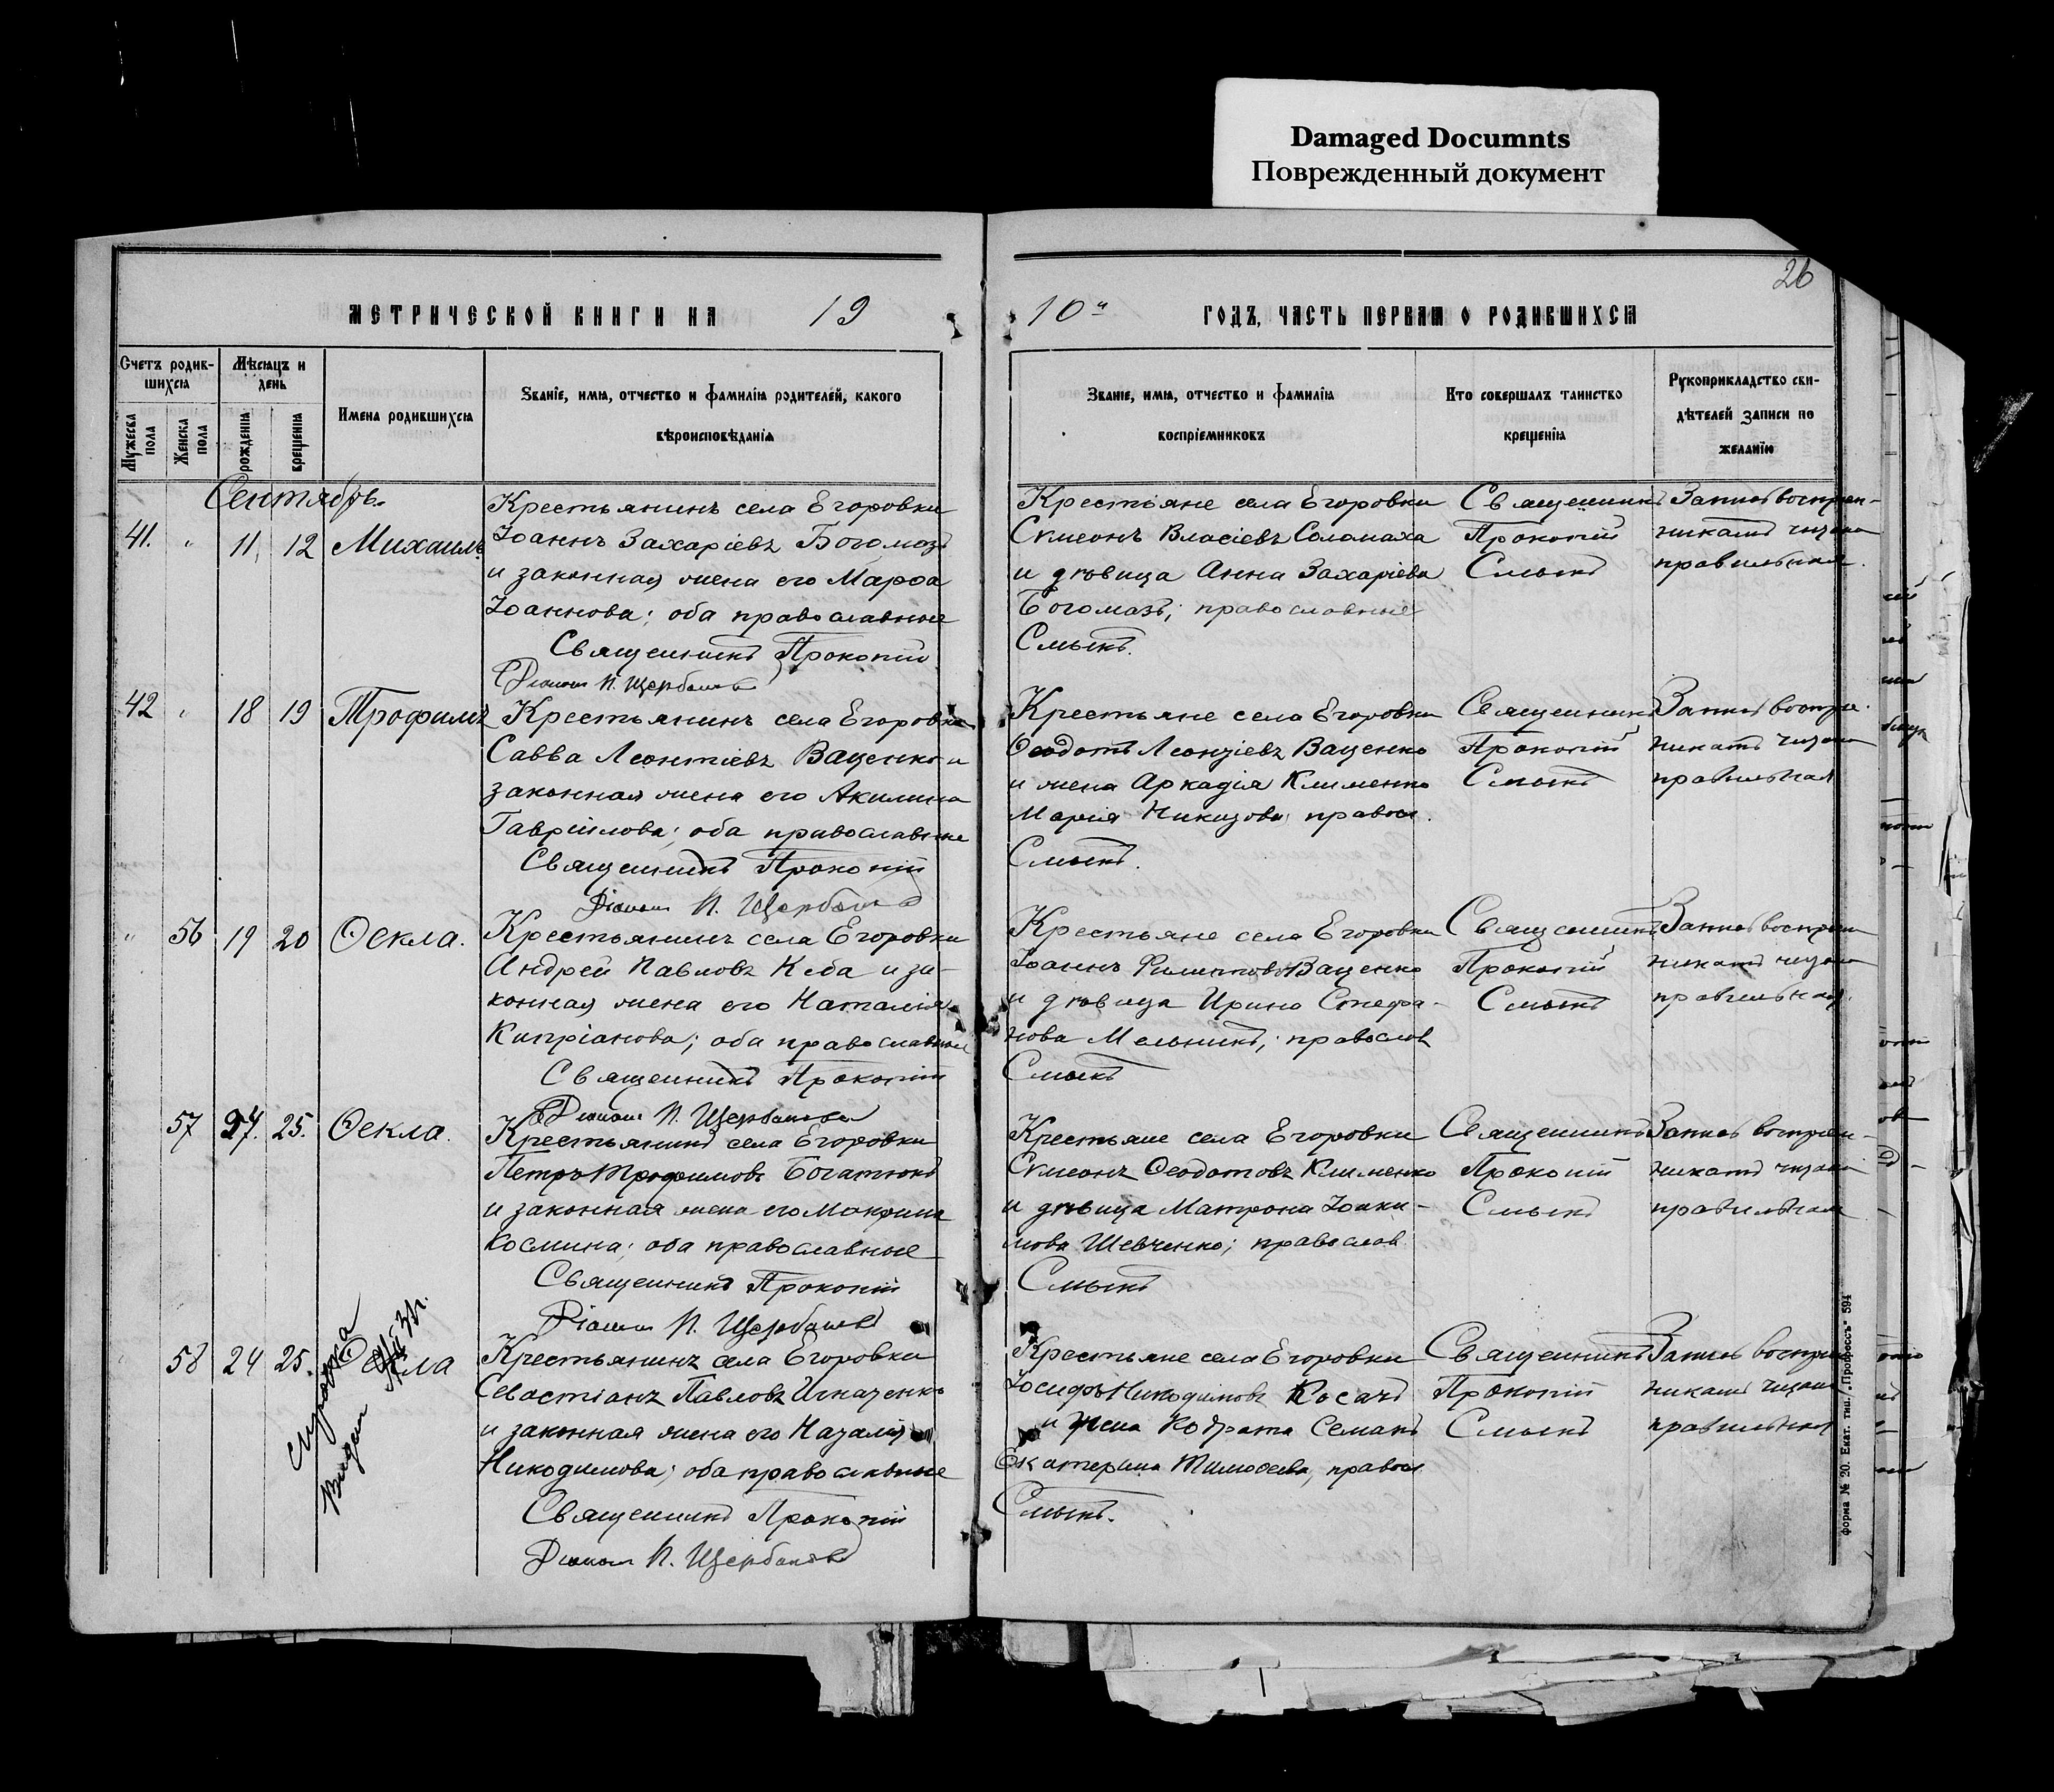 Damaged Documnts
Поврежденный документ
26
МЕТРИЧЕСКОЙ КНИГИ НА 19
10 ГОДЪ, ЧАСТЬ ПЕРВАЯ О РОДИВШИХСЯ
Счетъ родив-
шихся
Мужеска пола
Женска пола
Мѣсяцъ и
день
рожденія
крещенія
Имена родившихся
Званіе, имя, отчество и фамилія родителей, какого
вѣроисповѣданія
Званіе, имя, отчество и фамилія
воспріемниковъ
Кто совершалъ таинство
крещенія
Рукоприкладство сви-
дѣтелей записи по
желанію
Сентябрь.
41. " 11 12 Михаилъ
Крестьянинъ села Егоровки
Іоаннъ Захаріевъ Богомазъ
и законная жена его Марѳа
Іоаннова; оба православные
Священникъ Прокопій
П. Щербаковъ
Крестьяне села Егоровки
Симеонъ Власіевъ Соломаха
и дѣвица Анна Захаріева
Богомазъ; православные
Смыкъ.
Священникъ
Прокопій
Смыкъ
правильная.
42 " 18 19 Трофимъ
Крестьянинъ села Егоровки
Савва Леонтіевъ Ваценко и
законная жена его Акилина
Гавріилова; оба православные
Священникъ Прокопій
П. Щербаковъ
Крестьяне села Егоровки
Ѳеодотъ Леонтіевъ Ваценко
и жена Аркадія Клименко
Марія правосл.
Смыкъ.
Священникъ
Прокопій
Смыкъ
правильная
" 56 19 20 Ѳекла.
Крестьянинъ села Егоровки
Андрей Павловъ Кеба и за-
конная жена его Наталія
Кипріанова; оба православные
Священникъ Прокопій
П. Щербаковъ
Крестьяне села Егоровки
Іоаннъ Филипповъ Ваценко
и дѣвица Ирина Стефа-
нова Мельникъ; православ
Смыкъ
Священникъ
Прокопій
Смыкъ
правильная.
57 24. 25. Ѳекла.
Крестьянинъ села Егоровки
Петръ Трофимовъ Богатюкъ
и законная жена его Макрина
Космина; оба православные
Священникъ Прокопій
П. Щербаковъ
Крестьяне села Егоровки
Симеонъ Ѳеодотовъ Клименко
и дѣвица Матрона Іоаки-
мова Шевченко; православ
Смыкъ
Священникъ
Прокопій
Смыкъ
правильная
" 58 24 25. Ѳекла
справка
Выдан
Крестьянинъ села Егоровки
Севастіанъ Павловъ Игнаценко
и законная жена его Наталія
Никодимова; оба православные
Священникъ Прокопій
П. Щербаковъ
Крестьяне села Егоровки
Іосифъ Никодимовъ Косачъ
и жена Кодрата Семакъ
Екатерина Тимоѳеева, правосл
Смыкъ.
Священникъ
Прокопій
Смыкъ
правильная
форма № 20. Екат. тип. „Прогрессъ" 594